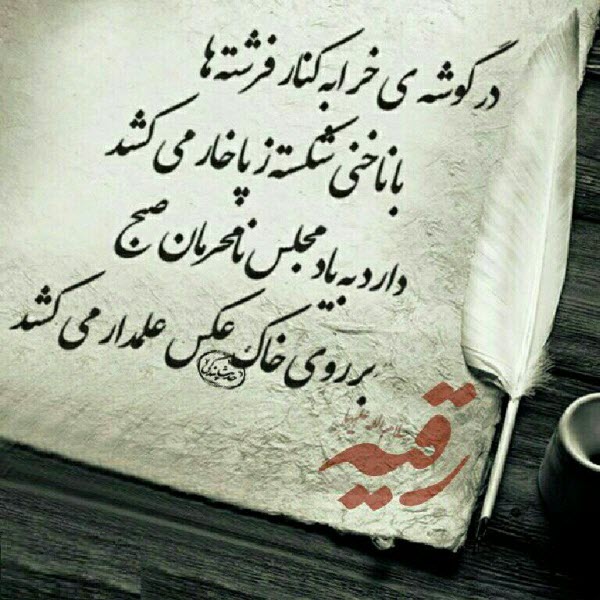 در گوشه ی خرابه کنار فرشته ها
با ناخنی شکسته ز پا خار می کشد
دارد به یاد مجلس نامحرمان صبح
بر روی خاک عکس علمدار می کشد
سلام الله علیها
رقیه